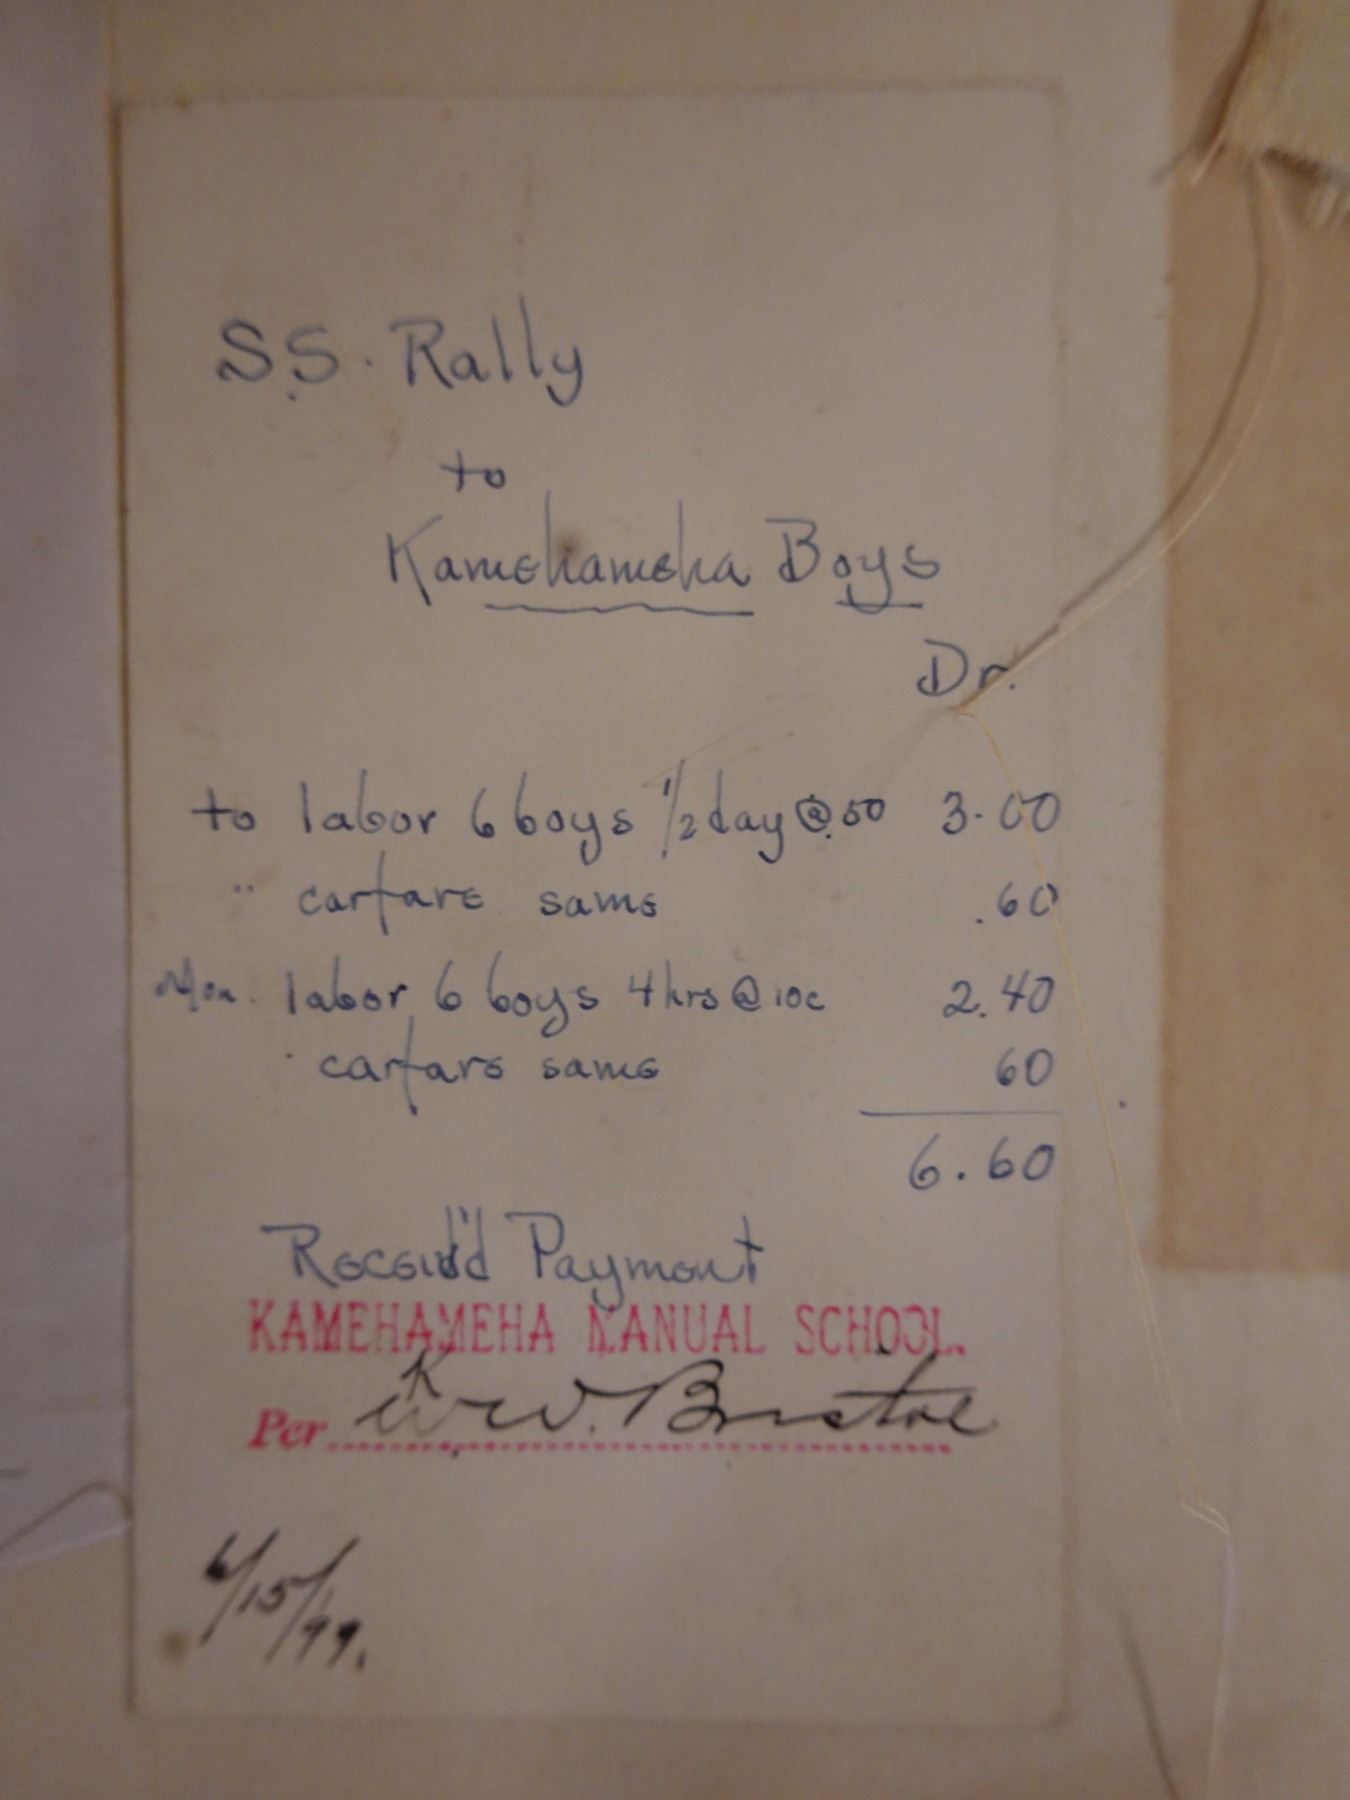 S.S. Rally
to
Kamehameha Boys
Dr.
to labor 6 boys 1/2 day @ 50 3.00
" carfare same .60
Mon. labor 6 boys 4 hrs @ 10c 2.40
carfare same 60
6.60
Receiv'd Payment
KAMEHAMEHA MANUAL SCHOOL.
Per W. Bristol
6/15/99.